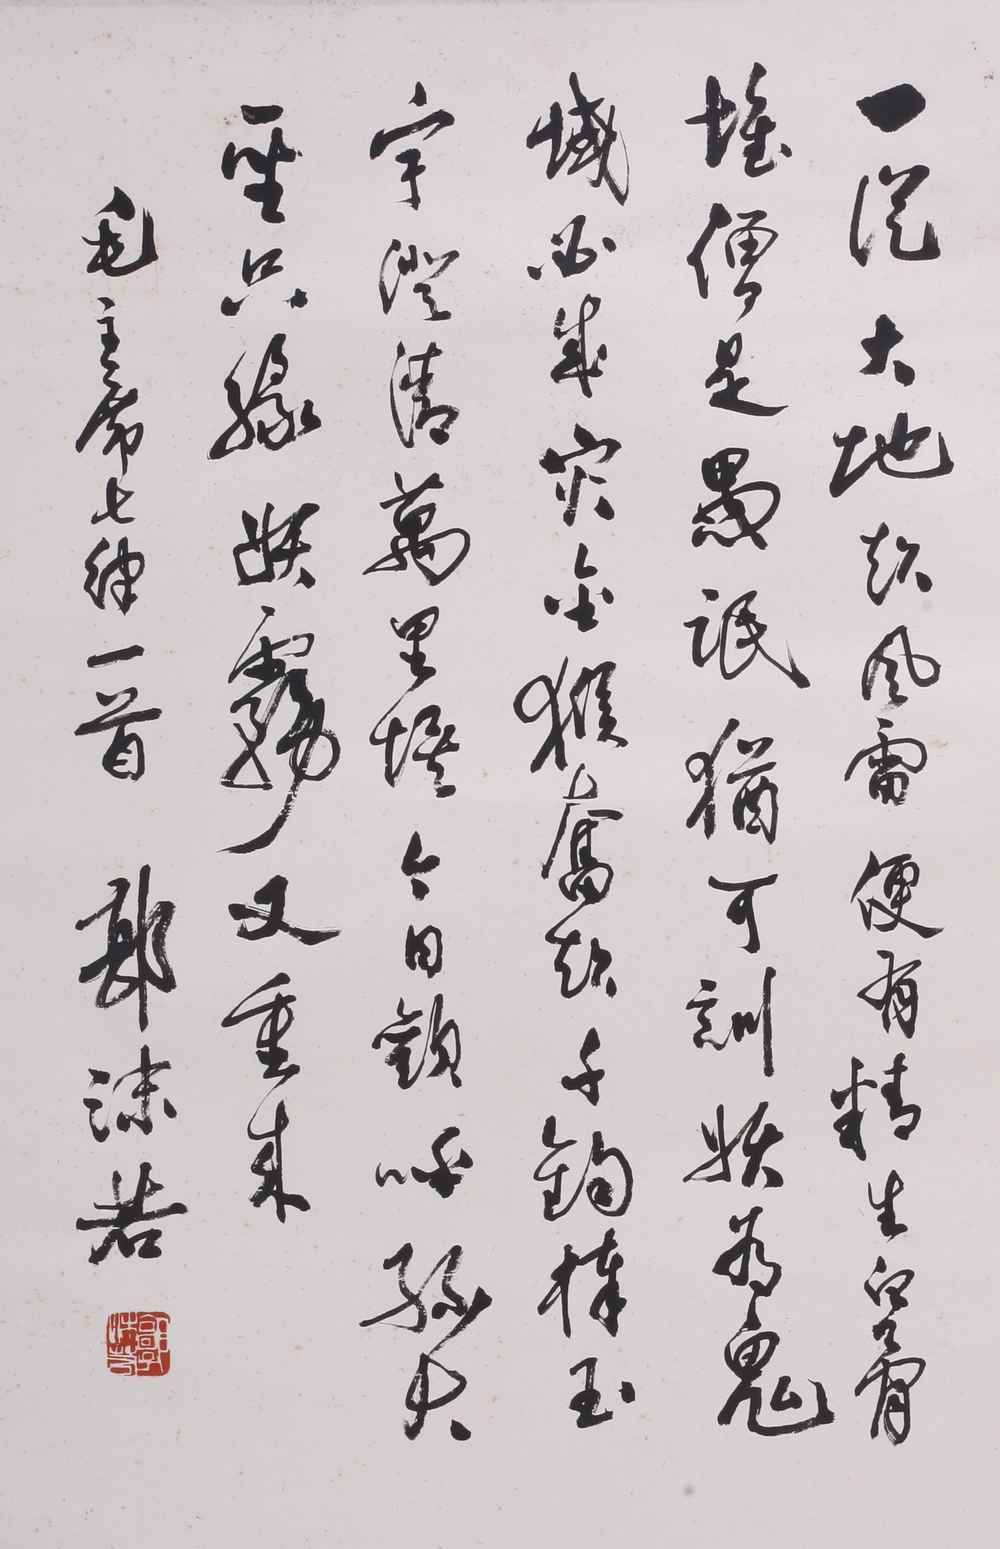 一從大地起風雷便有精生白骨
堆僧是愚氓猶可訓妖為鬼
蜮必成灾金猴奮起千鈞棒玉
宇澄清萬里埃今日歡呼孫大
聖只緣妖霧又重來
毛主席七律一首 郭沫若